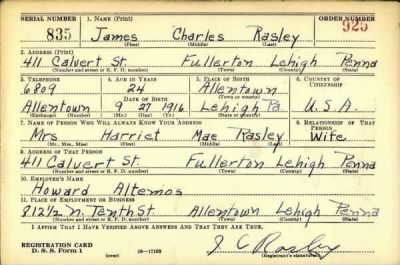 SERIAL NUMBER 1. NAME (Print) ORDER NUMBER
835 James Charles Rasley 925
(First) (Middle) (Last)
2. ADDRESS (Print)
411 Calvert St. Fullerton Lehigh Penna
(Number and street or R. F. D. number) (Town) (County) (State)
3. TELEPHONE 4. AGE IN YEARS 5. PLACE OF BIRTH 6. COUNTRY OF CITIZENSHIP
6809 24 Allentown
DATE OF BIRTH (Town or county)
Allentown 9 27 1916 Lehigh Pa. U.S.A.
(Exchange) (Number) (Mo.) (Day) (Yr.) (State or country)
7. NAME OF PERSON WHO WILL ALWAYS KNOW YOUR ADDRESS 8. RELATIONSHIP OF THAT PERSON
Mrs Harriet Mae Rasley Wife
(Mr., Mrs., Miss) (First) (Middle) (Last)
9. ADDRESS OF THAT PERSON
411 Calvert St. Fullerton Lehigh Penna
(Number and street or R. F. D. number) (Town) (County) (State)
10. EMPLOYER'S NAME
Howard Altemos
11. PLACE OF EMPLOYMENT OR BUSINESS
812½ n. Tenth St. Allentown Lehigh Penna
(Number and street or R. F. D. number) (Town) (County) (State)
I AFFIRM THAT I HAVE VERIFIED ABOVE ANSWERS AND THAT THEY ARE TRUE.
REGISTRATION CARD
D. S. S. Form 1 (over) 16—17105 J C Rasley
(Registrant's signature)